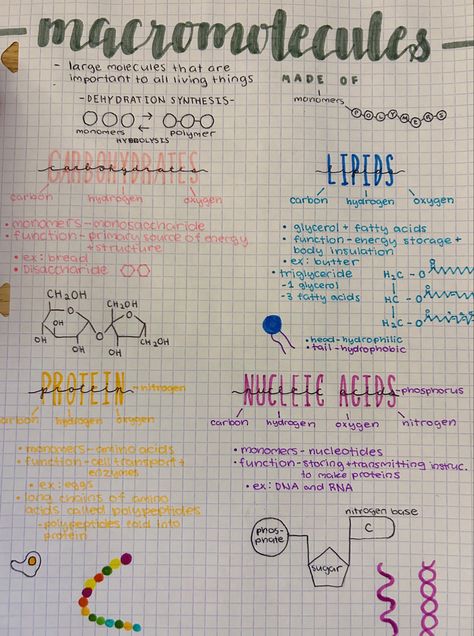 macromolecules
- large molecules that are
important to all living things
MADE OF
monomers
POLYMERS
- DEHYDRATION SYNTHESIS -
monomers
polymer
HYDROLYSIS
CARBOHYDRATES
carbohydrates
carbon hydrogen oxygen
• monomers - monosaccharide
• function - primary source of energy
+ structure
• ex: bread
• Disaccharide
CH₂OH
CH₂OH
O
O
OH
OH
O
OH
OH
OH
CH₂OH
LIPIDS
lipids
carbon hydrogen oxygen
• glycerol + fatty acids
• function - energy storage +
body insulation
• ex: butter
• triglyceride
- 1 glycerol
- 3 fatty acids
H₂C - O
HC - O
H₂C - O
• head - hydrophilic
• tail - hydrophobic
PROTEIN
protein
nitrogen
carbon hydrogen oxygen
• monomers - amino acids
• function - cell transport +
enzymes
• ex: eggs
• long chains of amino
acids called polypeptides
- polypeptides fold into
protein
NUCLEIC ACIDS
nucleic acids
phosphorus
carbon hydrogen oxygen nitrogen
• monomers - nucleotides
• function - storing + transmitting instruc.
to make proteins
• ex: DNA and RNA
nitrogen base
phos-
phate
C
sugar